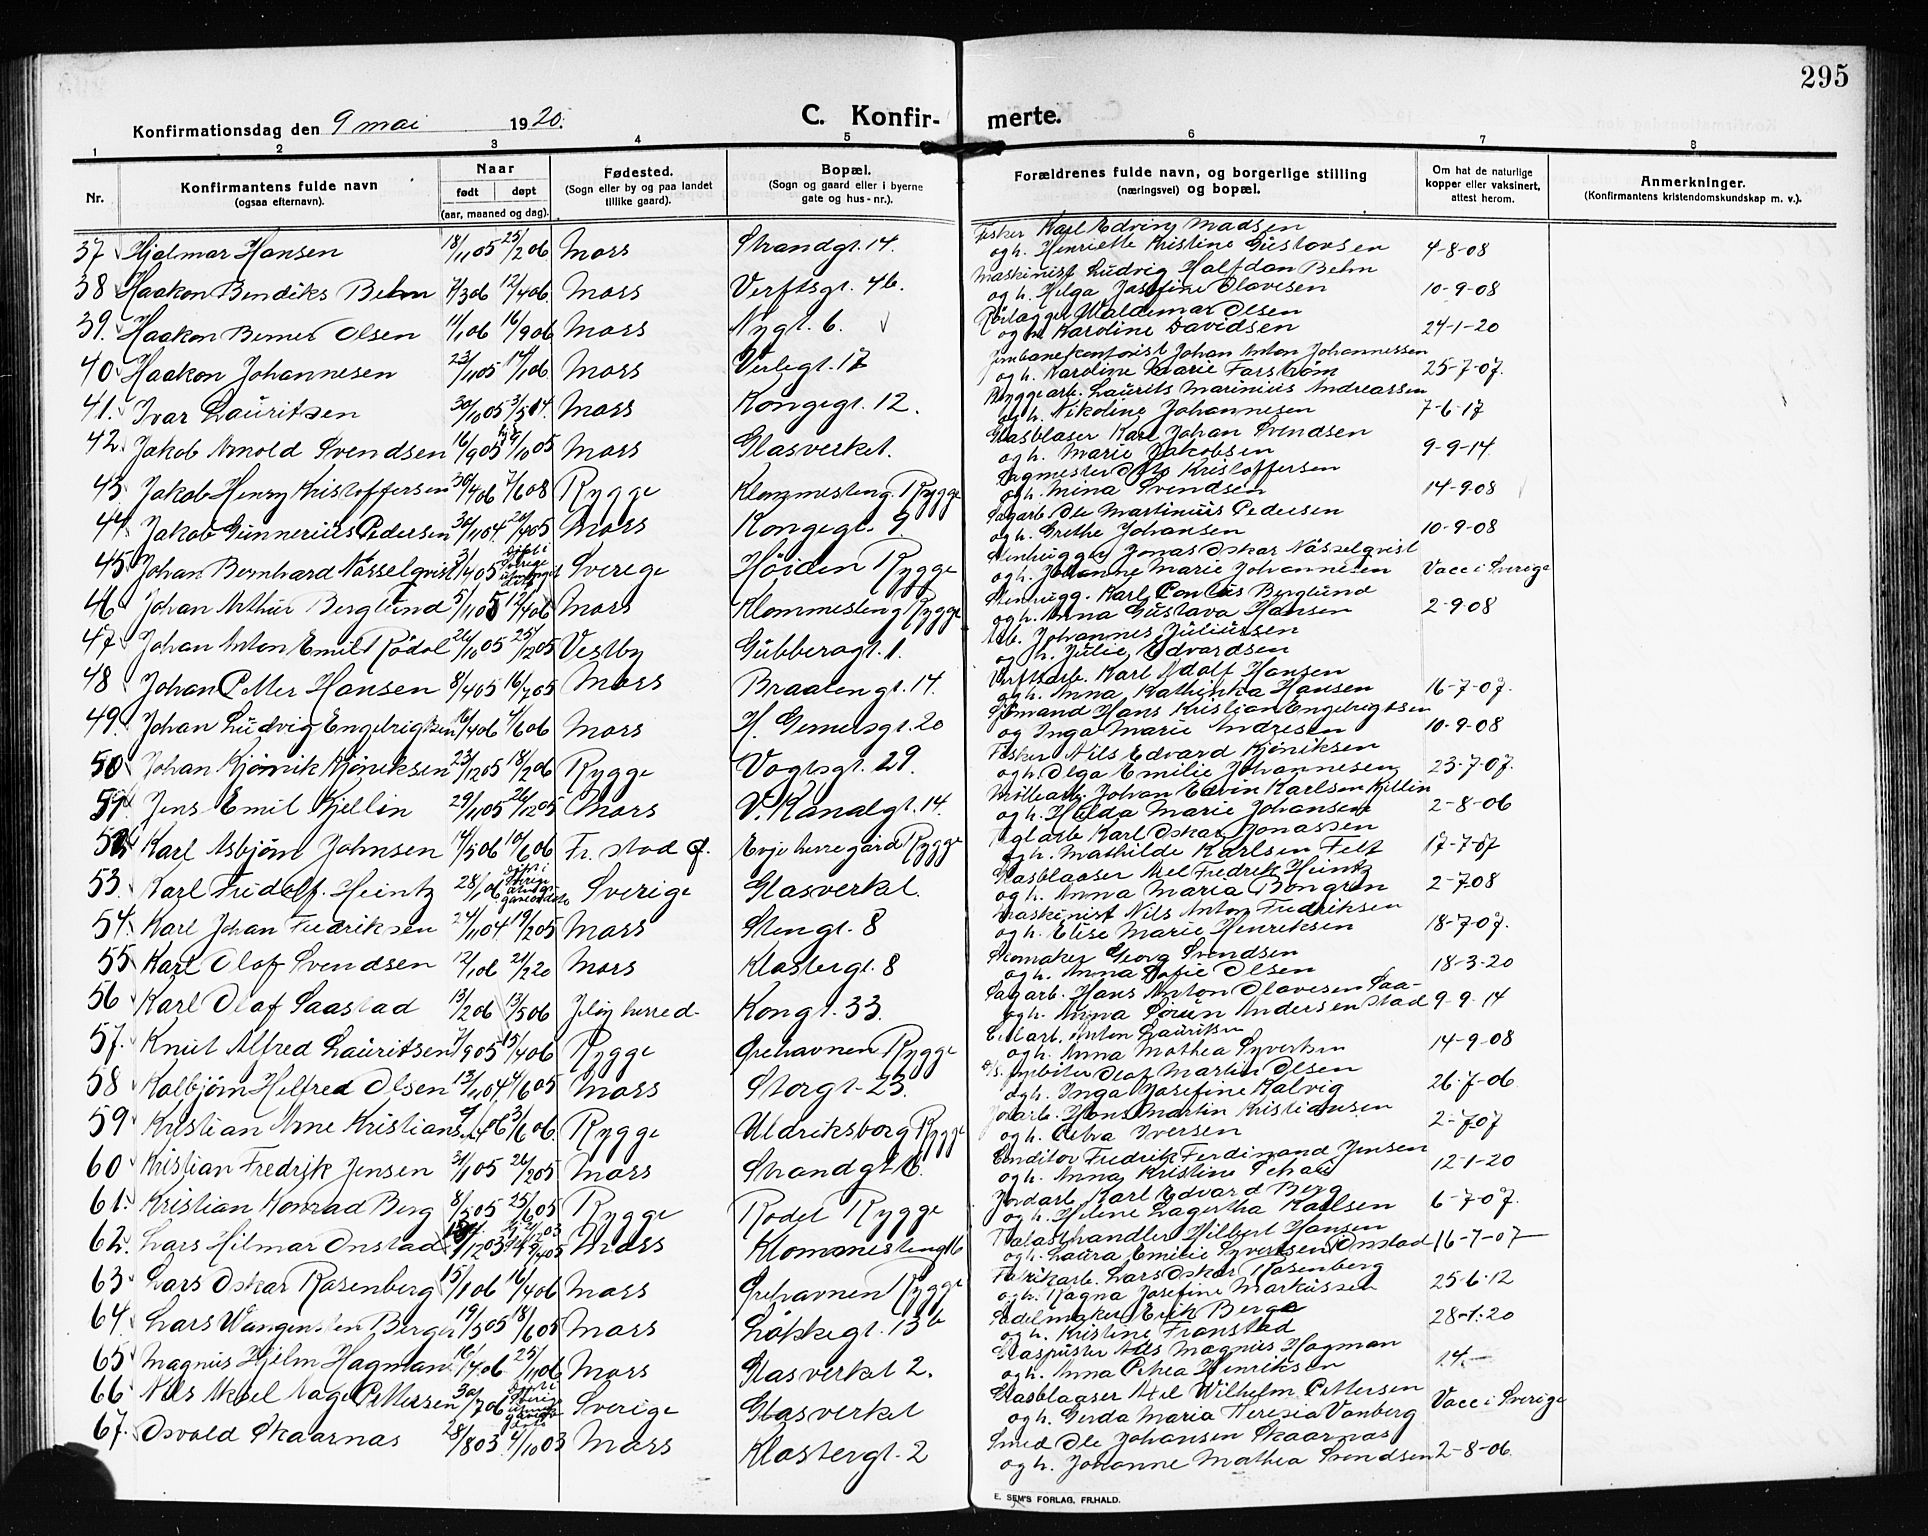 295
Konfirmationsdag den 9 mai 1920.
C. Konfirmerte.
1 2 3 4 5 6 7 8
Nr.
Konfirmantens fulde navn
(ogsaa efternavn).
Naar
født døpt
(aar, maaned og dag).
Fødested.
(Sogn eller by og paa landet
tillike gaard).
Bopæl.
(Sogn og gaard eller i byerne
gate og hus-nr.).
Forældrenes fulde navn, og borgerlige stilling
(næringsvei) og bopæl.
Om hat de naturlige
kopper eller vaksinert,
attest herom.
Anmerkninger.
(Konfirmantens kristendomskundskap m. v.).
37 Hjalmar Hansen 18/11 05 25/2 06 Moss Strandgt. 14. Fisker Karl Edvin Madsen
og h. Henriette Kristine Gustavsen 4-8-08
38 Haakon Bendiks Behn 7/3 06 12/4 06 Moss Verftsgt. 46. Maskinist Ludvig Halfdan Behn
og h. Helga Josefine Olavesen 10-9-08
39. Haakon Berner Olsen 11/1 06 16/9 06 Moss Nygt. 6. Rörlægger Waldemar Olsen
og h. Karoline Davidsen 24-1-20
40 Haakon Johannesen 23/11 05 14/1 06 Moss Verlegt. 17 Jernbanekontorist Johan Anton Johannessen
og h. Karoline Marie Farström 25-7-07.
41. Ivar Lauritsen 30/10 05 3/5 14. Moss Kongegt. 12. Bryggearb. Laurits Marinius Andreassen
og h. Nikoline Johannesen 7-6-17
42. Jakob Arnold Svendsen 16/9 05 /10 05 Moss Glasverket. Glasblaser Karl Johan Svendsen
og h. Marie Jakobsen 9-9-14
43. Jakob Henry Kristoffersen 30/4 06 7/6 08 Rygge Klommesteng. Rygge Sagmester Otto Kristoffersen
og h. Mina Svendsen 14-9-08
44. Jakob Gunnerius Pedersen 30/11 04. 05 Moss Kongegt. 9. Sagarb. Ole Martinius Pedersen
og h. Grethe Johansen 10-9-08
45. Johan Bernhard Nässelqvist 3/4 05 Sverige Höiden Rygge Stenhugger Jonas Oskar Nässelqvist
og h. Johanne Marie Johannesen Vacc i Sverige
46 Johan Arthur Berglund 5/11 05 12/4 06 Moss Klommesteng Rygge Stenhugg. Karl Pontus Berglund
og h. Anna Gustava Hansen 2-9-08
47 Johan Anton Emil Rödal 26/10 05 25/12 05 Vestby Gubberogt. 1. Arb. Johannes Juliussen
og h. Julie Edvardsen
48 Johan Petter Hansen 8/4 05 16/7 05 Moss Braatengt. 14. Verftsarb. Karl Adolf Hansen
og h. Anna Kathinka Hansen 16-7-07.
49. Johan Ludvig Engebrigtsen 16/4 06 4/6 06 Moss H. Gerners gt. 20 Sjömand Hans Kristian Engebrigtsen
og Inga Marie Andresen 10-9-08
50 Johan Kjönnik Kjöniksen 23/12 05 18/2 06 Rygge Vogtsgt. 29. Fisker Nils Edvard Kjöniksen
og h. Olga Emilie Johannesen 23-7-07.
51. Jens Emil Kjellin 29/11 05 26/12 05 Moss V. Kanalgt. 14. Möllearb. Johan Edvin Karlsen Kjellin
og h. Hulda Marie Johansen 2-8-06
52 Karl Asbjörn Johnsen 14/5 06 10/6 06 Fr. stad Evje herregård Rygge Teglarb Karl Oskar Jonassen
og h. Mathilde Karlsen Felt 17-7-07
53. Karl Fridolf Heintz 28/1 06 Sverige Glasverket. Glasblaaser Axel Fredrik Heintz
og h. Anna Maria Bongren 2-7-08
54. Karl Johan Fredriksen 24/11 04. 19/2 05 Moss Stengt. 8 Maskinist Nils Anton Fredriksen
og h. Elise Marie Henriksen 18-7-07.
55 Karl Olaf Svendsen 12/1 06 21/2 20 Moss Klostergt. 8 Skomaker Georg Svendsen
og h. Anna Sofie Olsen 18-3-20
56 Karl Olaf Saastad 13/2 06 13/5 06 Jelöy herred. Kongt. 33. Sagarb. Hans Anton Olavesen Saa-
og h. Anna Sörine Andersen stad 9-9-14
57. Knut Alfred Lauritsen 7/9 05 15/4 06 Rygge Örehavnen Rygge Anton Lauritsen
og h. Anna Mathea Syvertsen 14-9-08
58 Kolbjörn Helfred Olsen 13/11 04 4/6 05 Moss Storgt. 23. Olaf Martin Olsen
og h. Inga Josefine Kalvig 26-7-06
59 Kristian Arne Kristiansen 3/6 06. Rygge Uldriksborg Rygge Jordarb. Hans Martin Kristiansen
og h. Iversen 2-7-07
60 Kristian Fredrik Jensen 31/1 05 26/2 05 Moss Strandgt 6. Konditor Fredrik Ferdinand Jensen
og h. Anna Kristine 12-1-20
61. Kristian Konrad Berg 8/5 05 25/6 05 Rygge Rödet Rygge Jordarb. Karl Edvard Berg
og h. Helene Lagertha Karlsen 6-7-07.
62. Lars Hilmar Onstad /12 03 Moss Klommesteng 16 Hilbert Hansen
og h. Laura Emilie Syvertsen Onstad 16-7-07
63. Lars Oskar Rosenberg 15/1 06 16/4 06 Moss Örehavnen Rygge Fabrikarb. Lars Oskar Rosenberg
og h. Ragna Josefine Markussen 25-6-12
64. Lars Wangensten Berge 19/3 05 18/6 05 Moss Løkkegt. 13b Sadelmaker Erik Berge
og h. Kristine Fronstad 28-1-20
65 Magnus Hjelm Hagman 16/4 06 25/11 06 Moss Glasverket 2. Glaspuster Nils Magnus Hagman
og h. Anna Petrea Henriksen 14.
66 Nils Aksel Aage Pettersen 30/7 06 Sverige Glasverket Glasblaaser Axel Wilhelm Pettersen
og h. Gerda Maria Teresia Vanberg Vacc i Sverige
67. Osvald Skaarnas 28/8 03 4/10 03 Moss Klostergt. 2 Smed Ole Johansen Skaarnas
og h. Johanne Mathea Svendsen 2-8-06.
E. SEM'S FORLAG, FR.HALD.